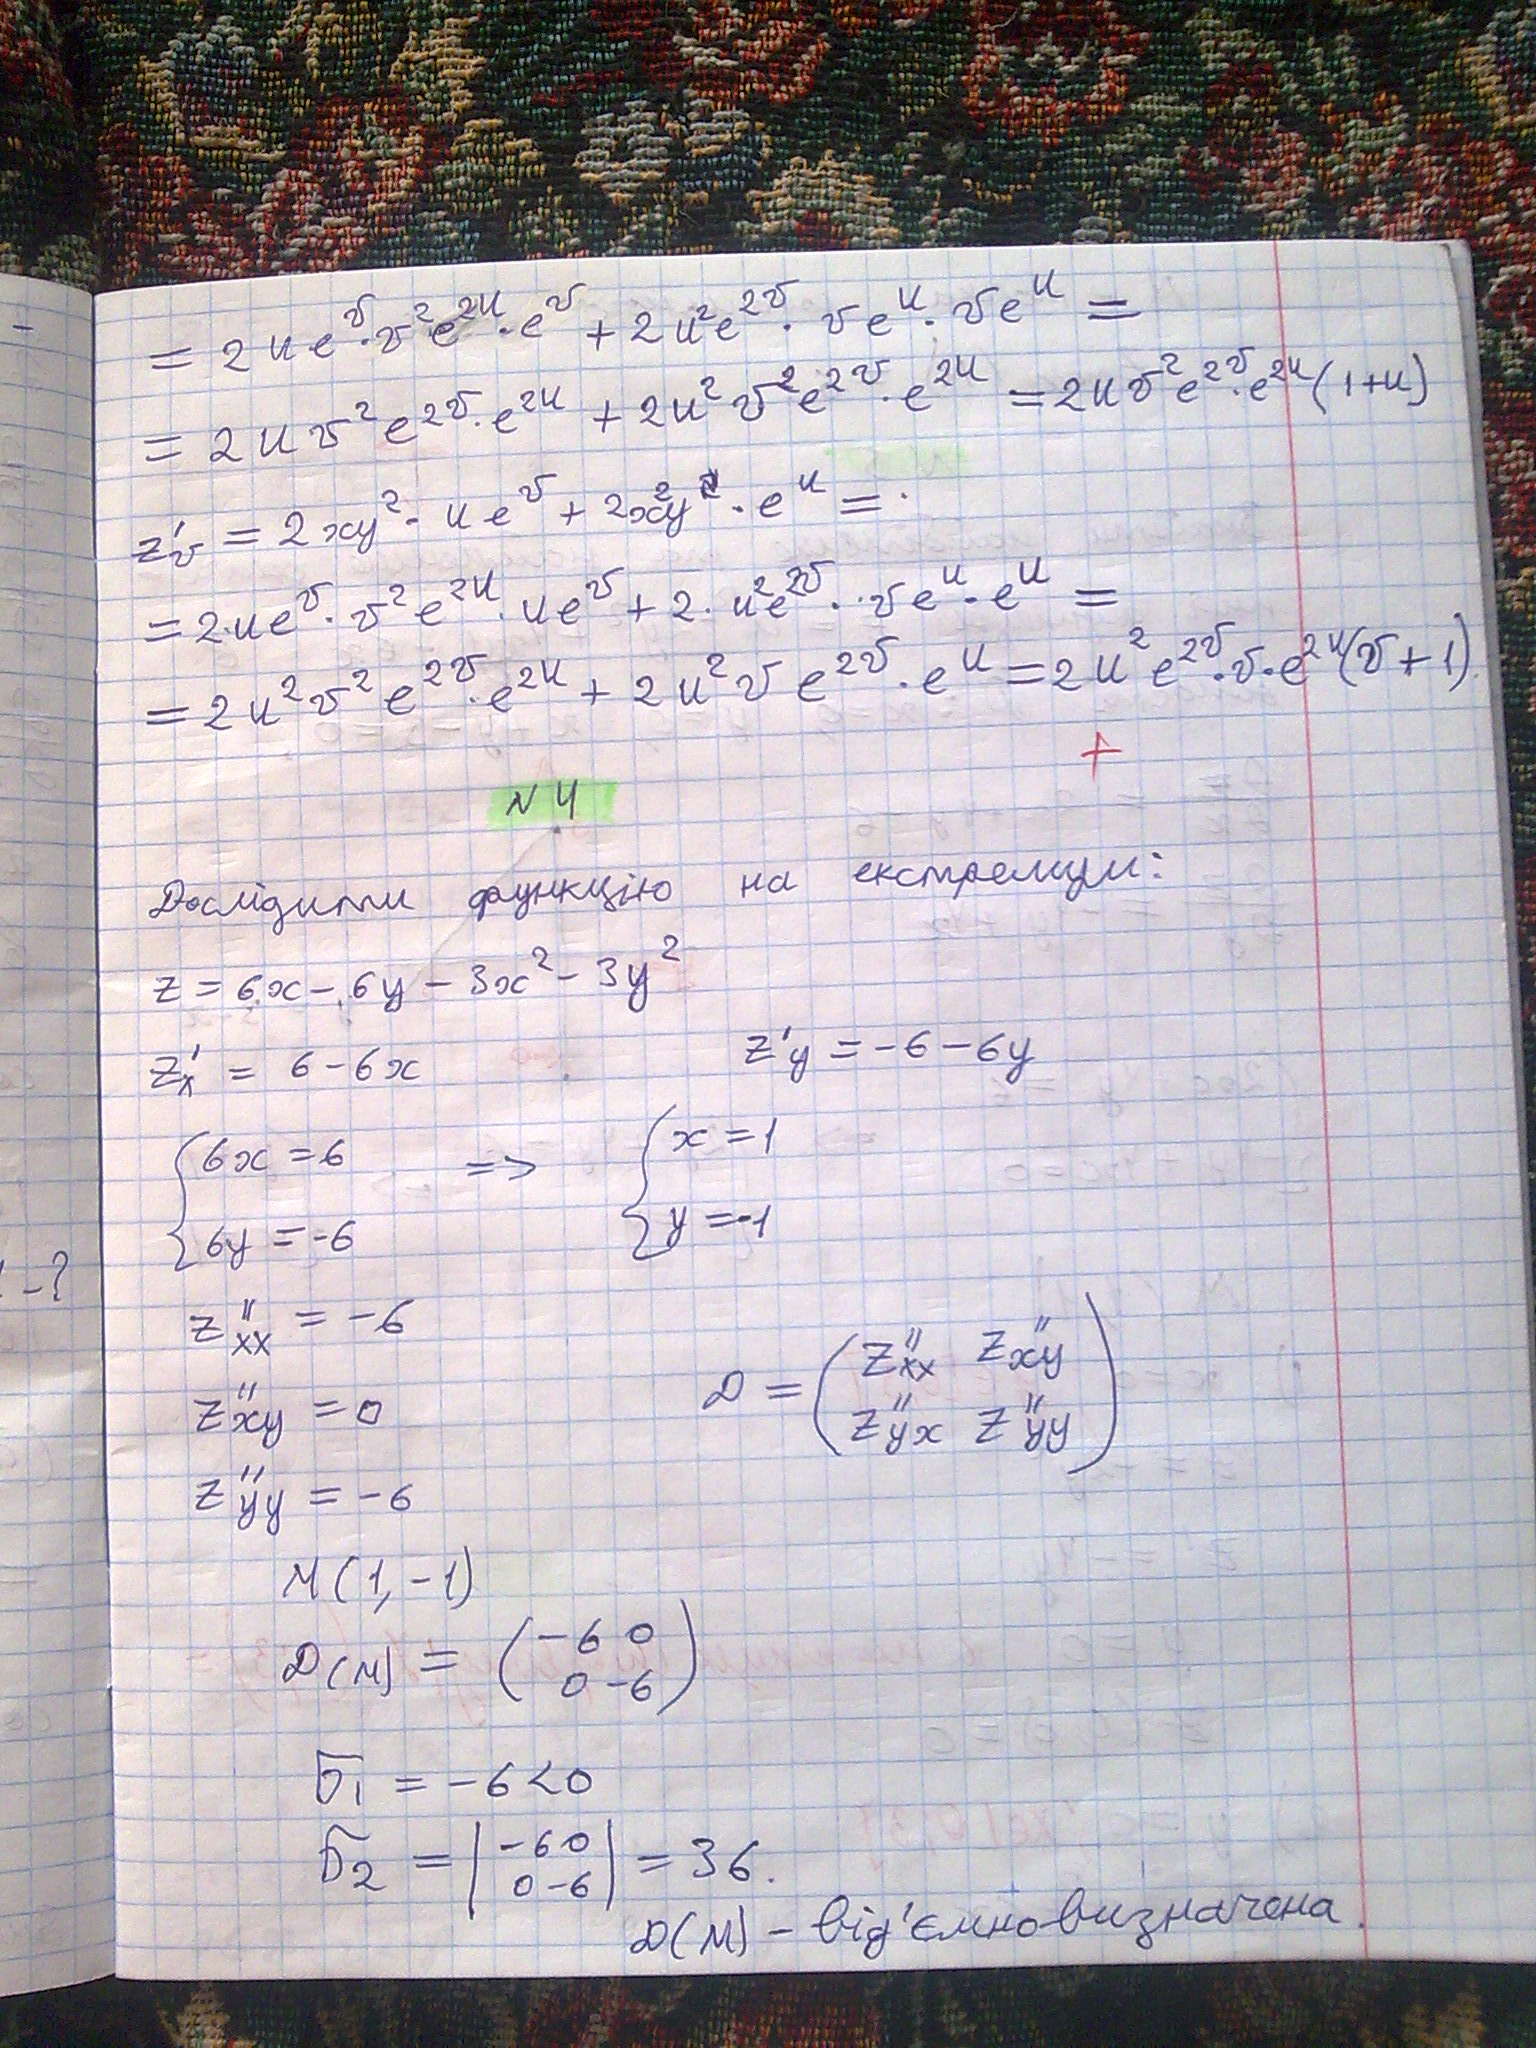 = 2ue^v·v²·e^{2u}·e^v + 2u²e^{2v}·ve^u·ve^u =
= 2uv²e^{2v}·e^{2u} + 2u²v²e^{2v}·e^{2u} = 2uv²e^{2v}·e^{2u}(1+u)
z'_v = 2xy²·ue^v + 2x²y·e^u =
= 2·ue^v·v²e^{2u}·ue^v + 2·u²e^{2v}·ve^u·e^u =
= 2u²v²e^{2v}·e^{2u} + 2u²ve^{2v}·e^u = 2u²e^{2v}·v·e^{2u}(v+1).
+
N 4
Дослідити функцію на екстремум:
z = 6x - 6y - 3x² - 3y²
z'_x = 6 - 6x z'_y = -6 - 6y
{6x = 6 => {x = 1
6y = -6 y = -1
z''_xx = -6
z''_xy = 0 D = (z''_xx z''_xy
z''_yx z''_yy)
z''_yy = -6
M(1, -1)
D(M) = (-6 0
0 -6)
Б₁ = -6 < 0
Б₂ = |-6 0
0 -6| = 36.
D(M) - від'ємно визначена.
- ?